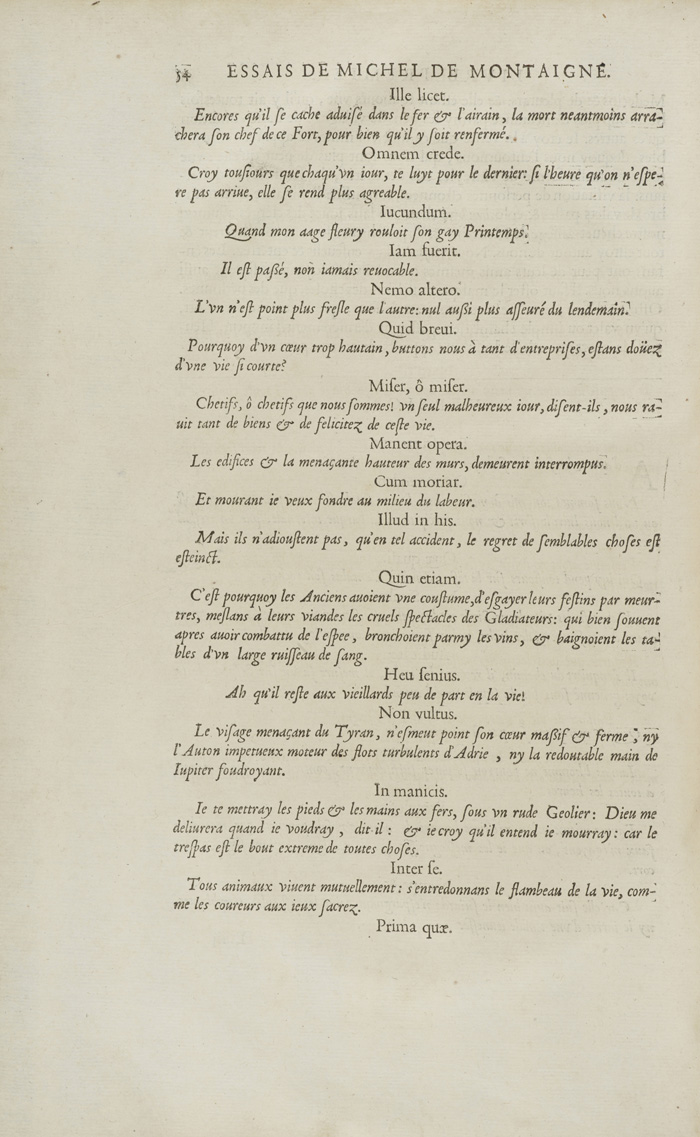 54 ESSAIS DE MICHEL DE MONTAIGNE.
Ille licet.
Encores qu'il ſe cache aduiſé dans le fer & l'airain, la mort neantmoins arra-
chera ſon chef de ce Fort, pour bien qu'il y ſoit renfermé.
Omnem crede.
Croy touſiours que chaqu'vn iour, te luyt pour le dernier: ſi l'heure qu'on n'eſpe-
re pas arriue, elle ſe rend plus agreable.
Iucundum.
Quand mon aage fleury rouloit ſon gay Printemps.
Iam fuerit.
Il eſt paßé, non iamais reuocable.
Nemo altero.
L'vn n'eſt point plus freſle que l'autre: nul außi plus aſſeuré du lendemain.
Quid breui.
Pourquoy d'vn cœur trop hautain, buttons nous à tant d'entrepriſes, eſtans doüez
d'vne vie ſi courte?
Miſer, ô miſer.
Chetifs, ô chetifs que nous ſommes! vn ſeul malheureux iour, diſent-ils, nous ra-
uit tant de biens & de felicitez de ceſte vie.
Manent opera.
Les edifices & la menaçante hauteur des murs, demeurent interrompus.
Cum moriar.
Et mourant ie veux fondre au milieu du labeur.
Illud in his.
Mais ils n'adiouſtent pas, qu'en tel accident, le regret de ſemblables choſes eſt
eſteinct.
Quin etiam.
C'eſt pourquoy les Anciens auoient vne couſtume, d'eſgayer leurs feſtins par meur-
tres, meſlans à leurs viandes les cruels ſpectacles des Gladiateurs: qui bien ſouuent
apres auoir combattu de l'eſpee, bronchoient parmy les vins, & baignoient les ta-
bles d'vn large ruiſſeau de ſang.
Heu ſenius.
Ah qu'il reſte aux vieillards peu de part en la vie!
Non vultus.
Le viſage menaçant du Tyran, n'eſmeut point ſon cœur maßif & ferme; ny
l'Auton impetueux moteur des flots turbulents d'Adrie, ny la redoutable main de
Iupiter foudroyant.
In manicis.
Ie te mettray les pieds & les mains aux fers, ſous vn rude Geolier: Dieu me
deliurera quand ie voudray, dit-il: & ie croy qu'il entend ie mourray: car le
treſpas eſt le bout extreme de toutes choſes.
Inter ſe.
Tous animaux viuent mutuellement: s'entredonnans le flambeau de la vie, com-
me les coureurs aux ieux ſacrez.
Prima quæ.